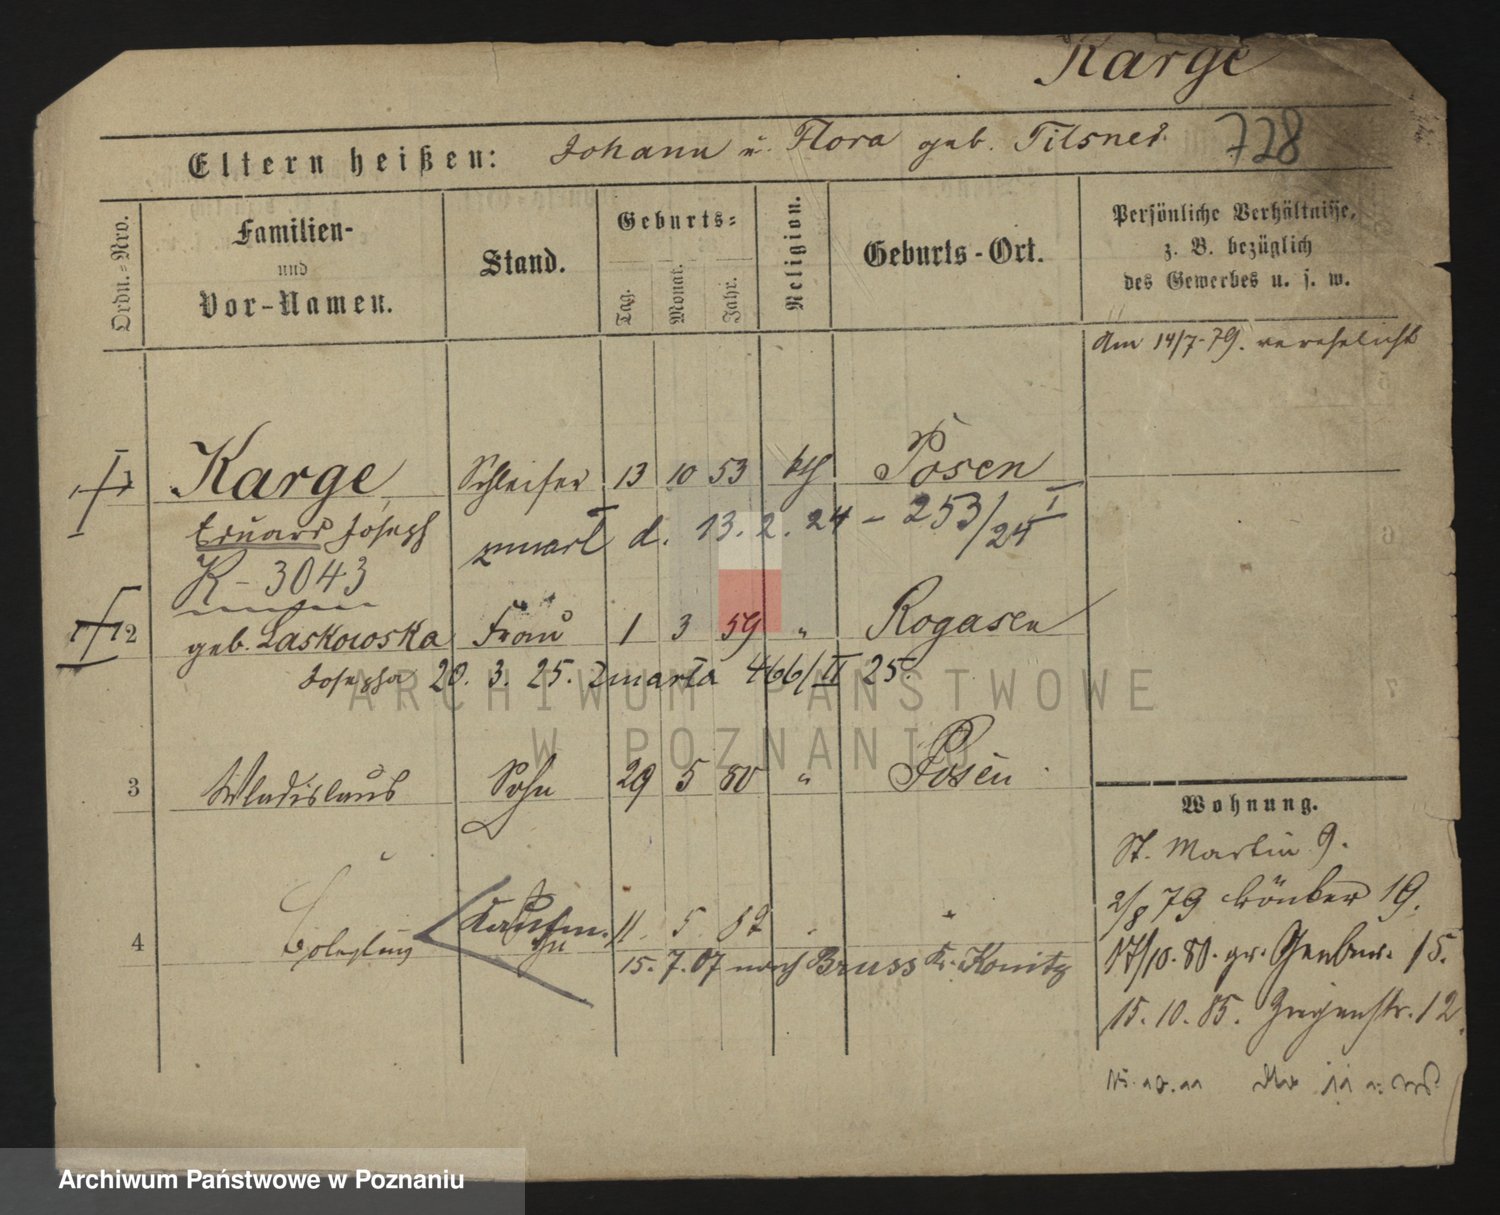 Karge
Eltern heißen: Johann u. Flora geb. Tilsner 728
Ordn.=Nro.
Familien-
und
Vor-Namen.
Stand.
Geburts=
Tag.
Monat.
Jahr.
Religion.
Geburts-Ort.
Persönliche Verhältnisse,
z. B. bezüglich
des Gewerbes u. s. w.
Am 14/7-79. verehelicht
1 Karge Schleifer 13 10 53 kth Posen
Eduard Joseph zmarł d. 13. 2. 24 – 253/24 I
R – 3043
2 geb. Laskowska Frau 1 3 59 " Rogasen
Josepha 20. 3. 25. zmarła 466/II 25.
3 Wladislaus Sohn 29 5 80 " Posen
4 Boleslaus Kaufm. 11. 5. 82 "
Sohn 15. 7. 07 nach Bruss Kr. Konitz
Wohnung.
St. Martin 9.
2/8 79 19.
17/10. 80. gr. Gerber. 15.
15. 10. 85. Ziegenstr. 12.
ARCHIWUM PAŃSTWOWE
W POZNANIU
Archiwum Państwowe w Poznaniu